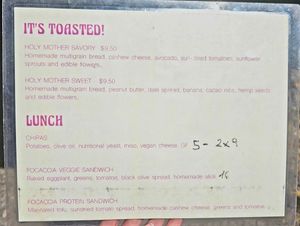 IT'S TOASTED!
HOLY MOTHER SAVORY - $9.50
Homemade multigrain bread, cashew cheese, avocado, sun-dried tomatoes, sunflower
sprouts and edible flowers.
HOLY MOTHER SWEET - $9.50
Homemade multigrain bread, peanut butter, date spread, banana, cacao nibs, hemp seeds
and edible flowers.
LUNCH
CHIPAS
Potatoes, olive oil, nutritional yeast, miso, vegan cheese. GF 5 - 2x9
FOCACCIA VEGGIE SANDWICH
Baked eggplant, greens, tomatoe, black olive spread, homemade 16
FOCACCIA PROTEIN SANDWICH
Marinated tofu, sundried tomato spread, homemade cashew cheese, greens and tomatoe